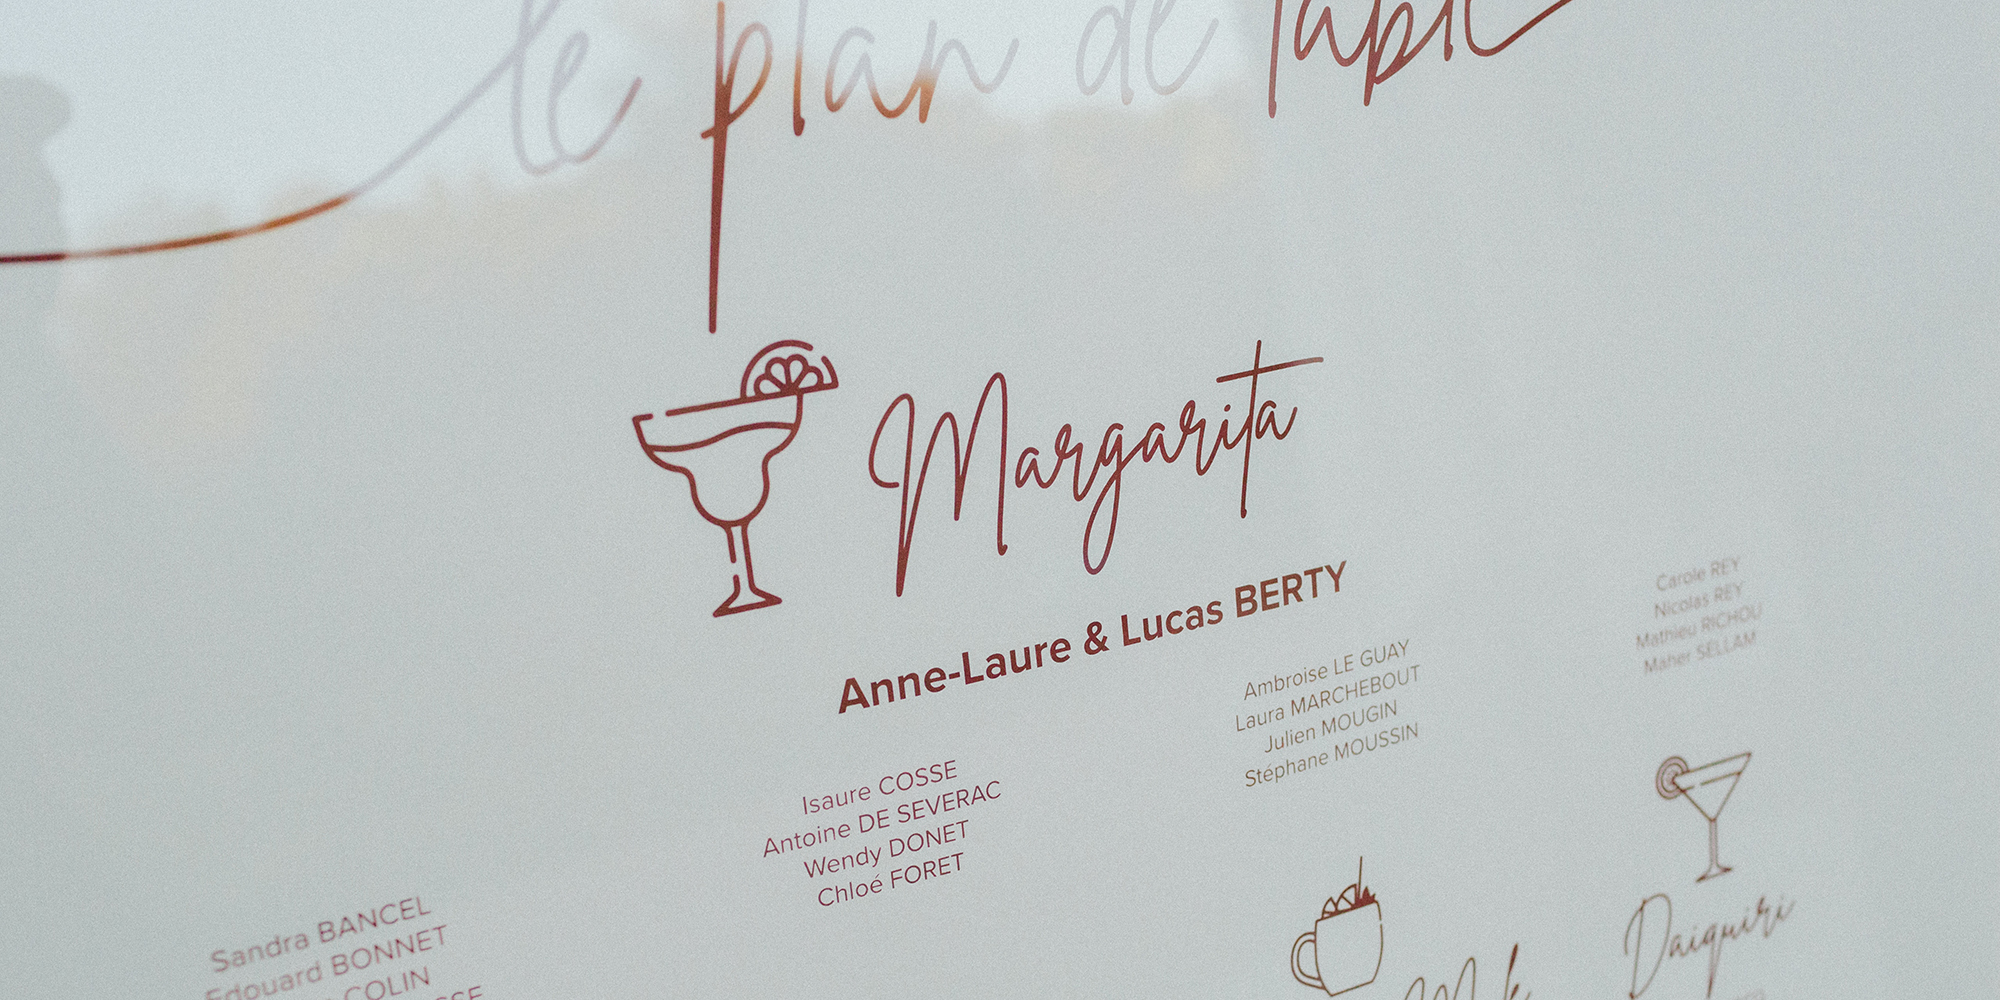 le plan de table
Margarita
Anne-Laure & Lucas BERTY
Sandra BANCEL
Edouard BONNET
COLIN
Isaure COSSE
Antoine DE SEVERAC
Wendy DONET
Chloé FORET
Ambroise LE GUAY
Laura MARCHEBOUT
Julien MOUGIN
Stéphane MOUSSIN
Carole REY
Nicolas REY
Mathieu RICHOU
Maher SELLAM
Daiquiri